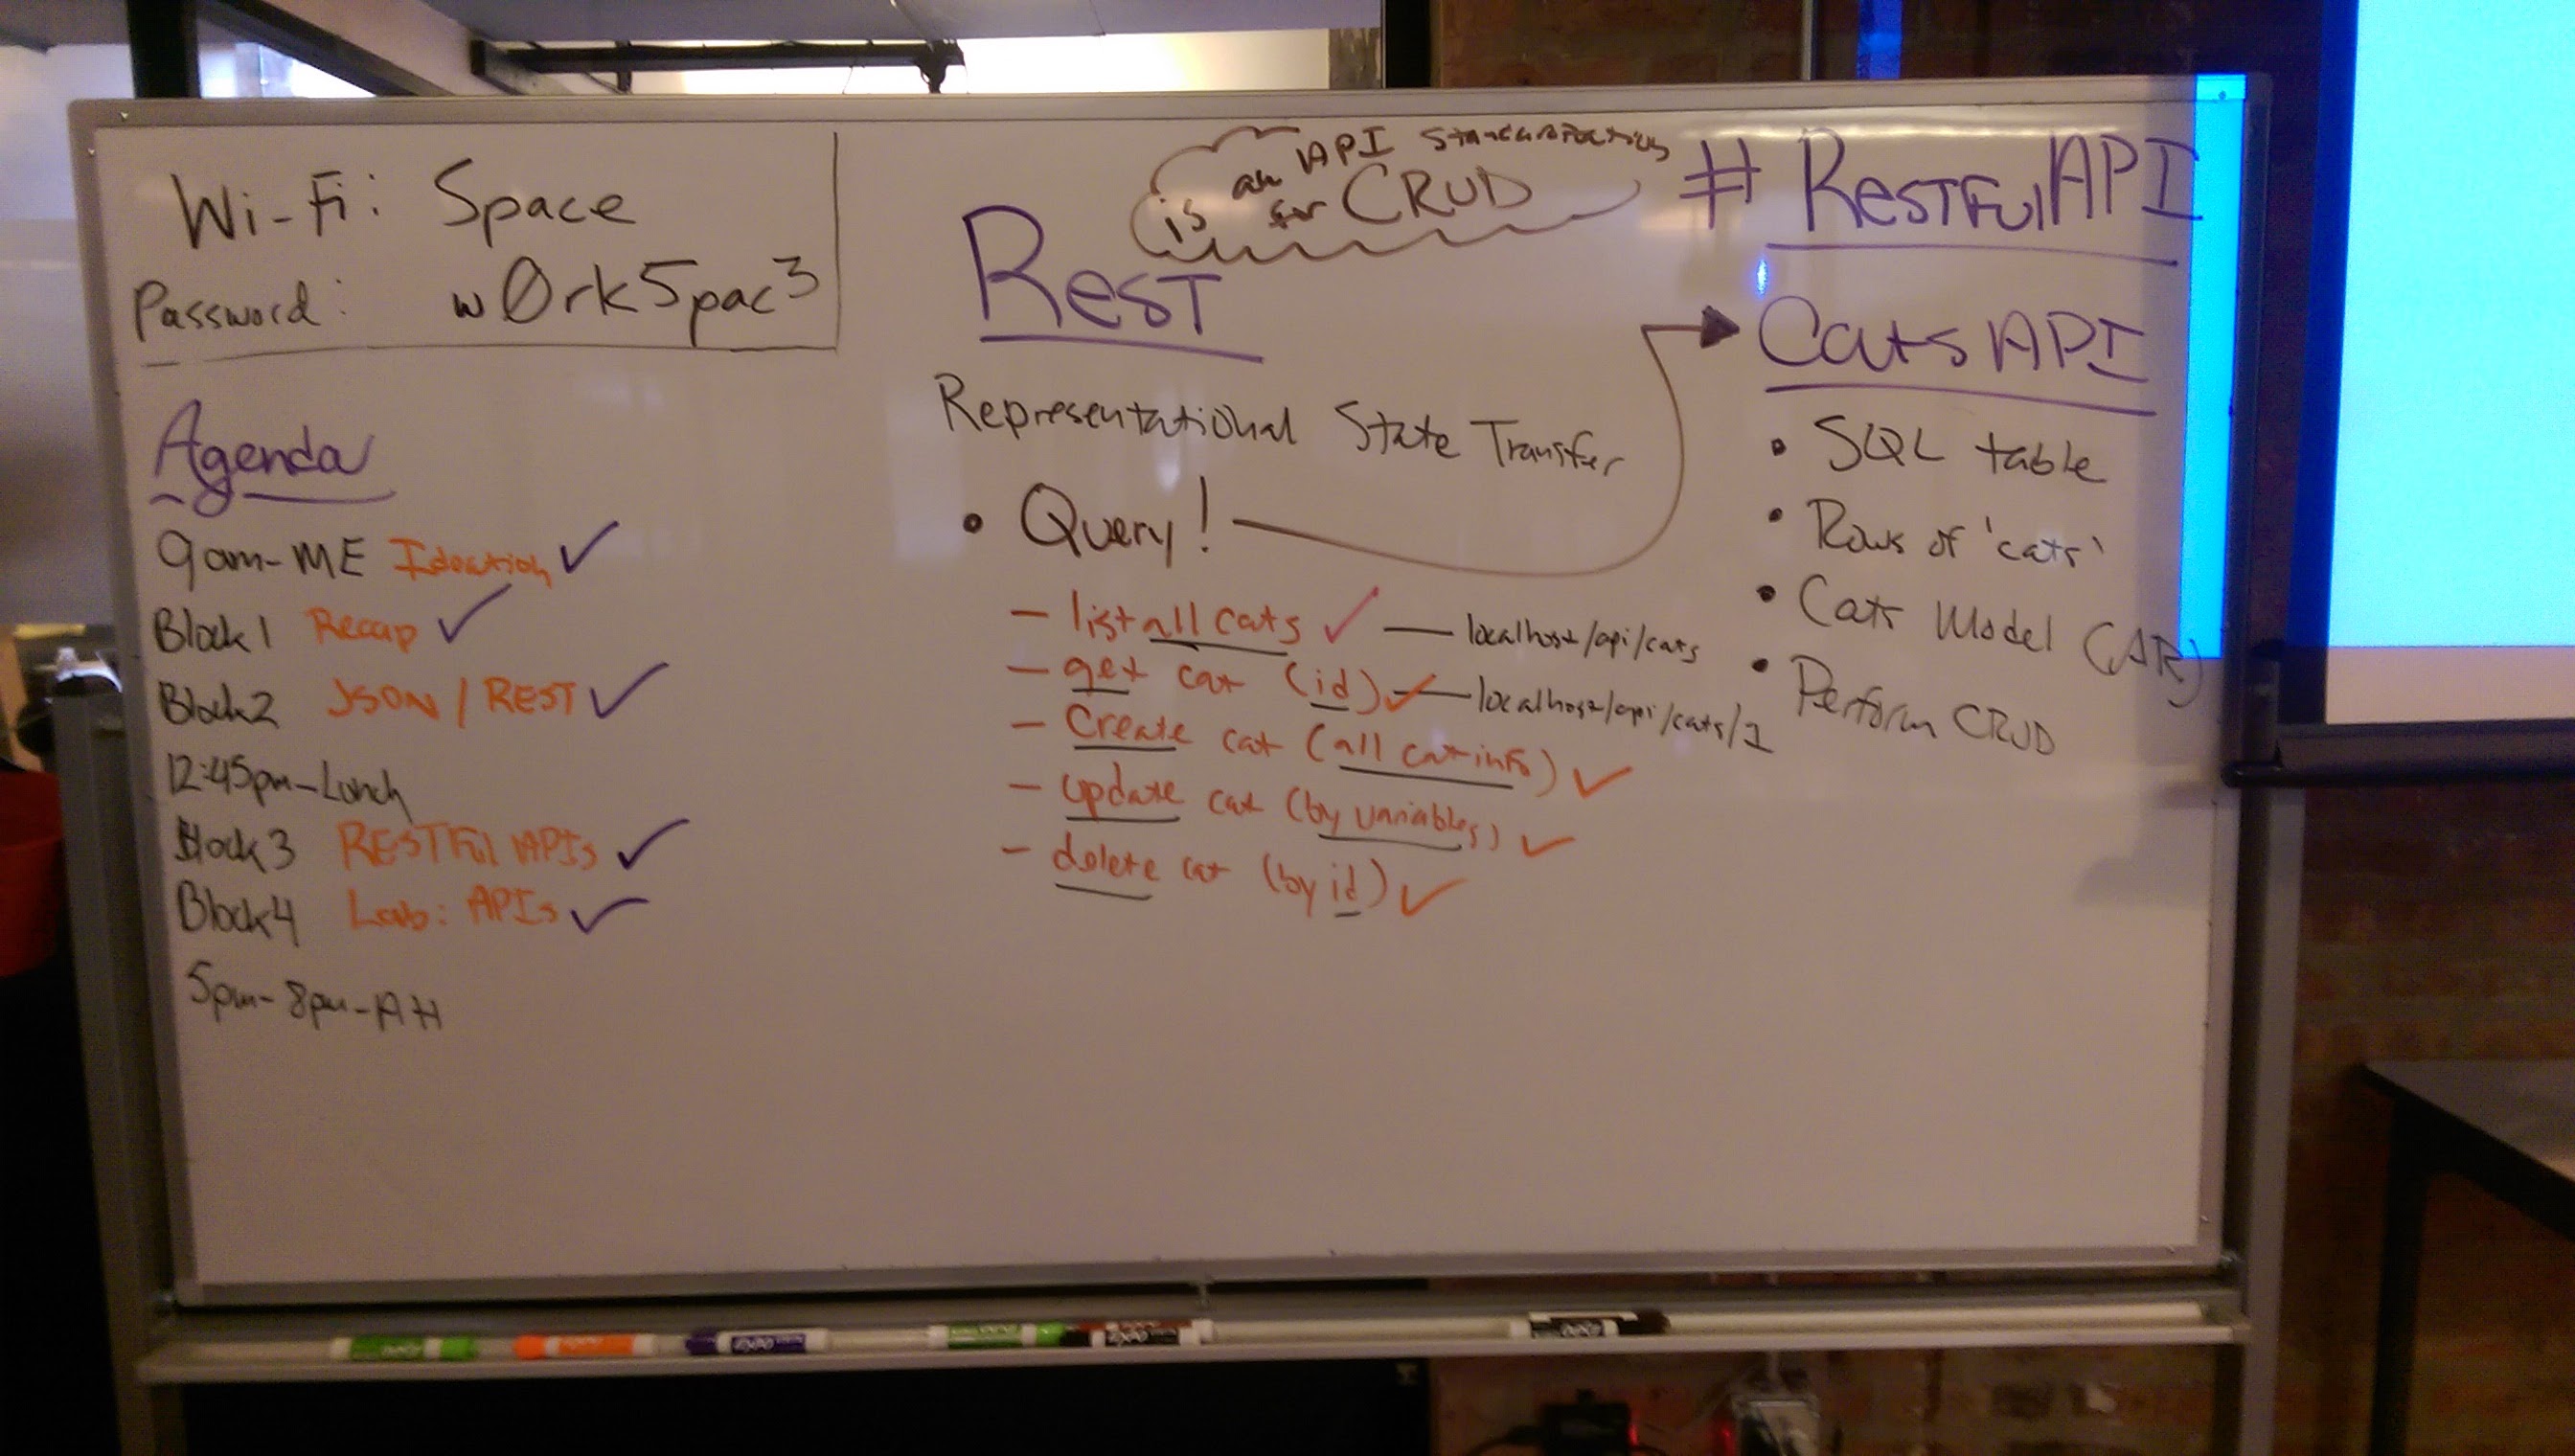 Wi-Fi: Space
Password: w0rk5pac3
Agenda
9am-ME Ideation ✓
Block1 Recap ✓
Block2 JSON / REST ✓
12:45pm-Lunch
Block3 RESTFul APIs ✓
Block4 Lab: APIs ✓
5pm-8pm-AH
is an API
for CRUD
ReST
Representational State Transfer
• Query!
- list all cats ✓ — localhost/api/cats
- get cat (id) ✓ — localhost/api/cats/1
- Create cat (all cat info) ✓
- update cat (by variables) ✓
- delete cat (by id) ✓
# RESTFulAPI
Cats API
• SQL table
• Rows of 'cats'
• Cats Model (AR)
• Perform CRUD